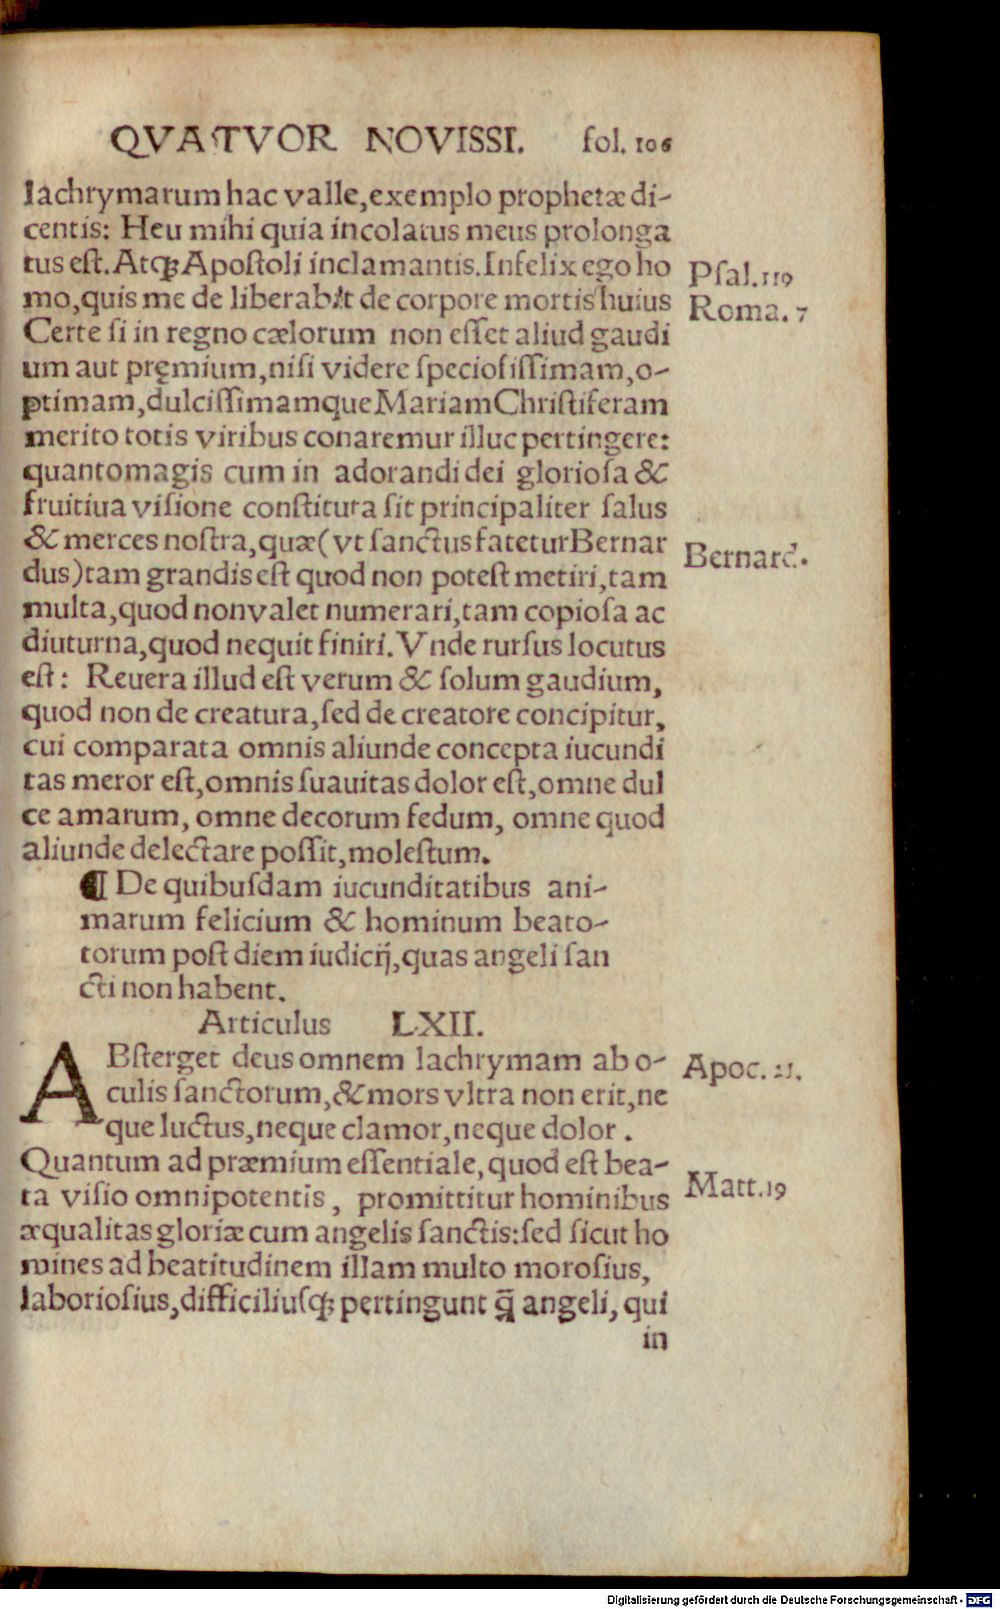 QVATVOR NOVISSI. fol. 106
lachrymarum hac valle, exemplo prophetæ di-
centis: Heu mihi quia incolatus meus prolonga
tus est. Atqꝫ Apostoli inclamantis. Infelix ego ho
Psal. 119
mo, quis me de liberabit de corpore mortis huius
Roma. 7
Certe si in regno cælorum non esset aliud gaudi
um aut pręmium, nisi videre speciosissimam, o-
ptimam, dulcissimamque Mariam Christiferam
merito totis viribus conaremur illuc pertingere:
quantomagis cum in adorandi dei gloriosa &
fruitiua visione constituta sit principaliter salus
& merces nostra, quæ (vt sanctus fatetur Bernar
Bernard.
dus) tam grandis est quod non potest metiri, tam
multa, quod non valet numerari, tam copiosa ac
diuturna, quod nequit finiri. Vnde rursus locutus
est: Reuera illud est verum & solum gaudium,
quod non de creatura, sed de creatore concipitur,
cui comparata omnis aliunde concepta iucundi
tas meror est, omnis suauitas dolor est, omne dul
ce amarum, omne decorum fedum, omne quod
aliunde delectare possit, molestum.
¶ De quibusdam iucunditatibus ani-
marum felicium & hominum beato-
torum post diem iudicij, quas angeli san
cti non habent.
Articulus LXII.
ABsterget deus omnem lachrymam ab o-
Apoc. 21.
culis sanctorum, & mors vltra non erit, ne
que luctus, neque clamor, neque dolor.
Quantum ad præmium essentiale, quod est bea-
ta visio omnipotentis, promittitur hominibus
Matt. 19
æqualitas gloriæ cum angelis sanctis: sed sicut ho
mines ad beatitudinem illam multo morosius,
laboriosius, difficiliusqꝫ pertingunt q̃ angeli, qui
in
Digitalisierung gefördert durch die Deutsche Forschungsgemeinschaft - DFG